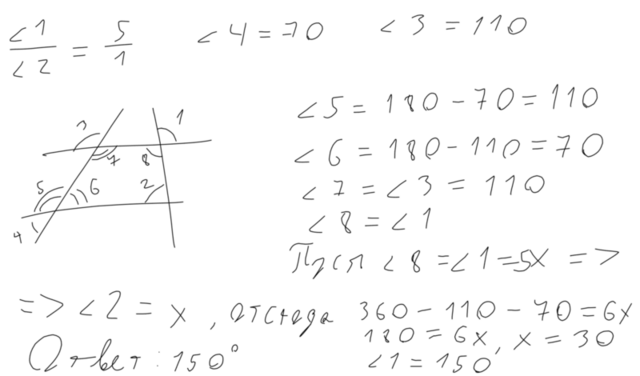 ∠1/∠2 = 5/1 ∠4 = 70 ∠3 = 110
∠5 = 180 - 70 = 110
∠6 = 180 - 110 = 70
∠7 = ∠3 = 110
∠8 = ∠1
Пусть ∠8 = ∠1 = 5x =>
=> ∠2 = x, отсюда 360 - 110 - 70 = 6x
180 = 6x, x = 30
∠1 = 150
Ответ: 150°
3 1
7 8
5 6 2
4